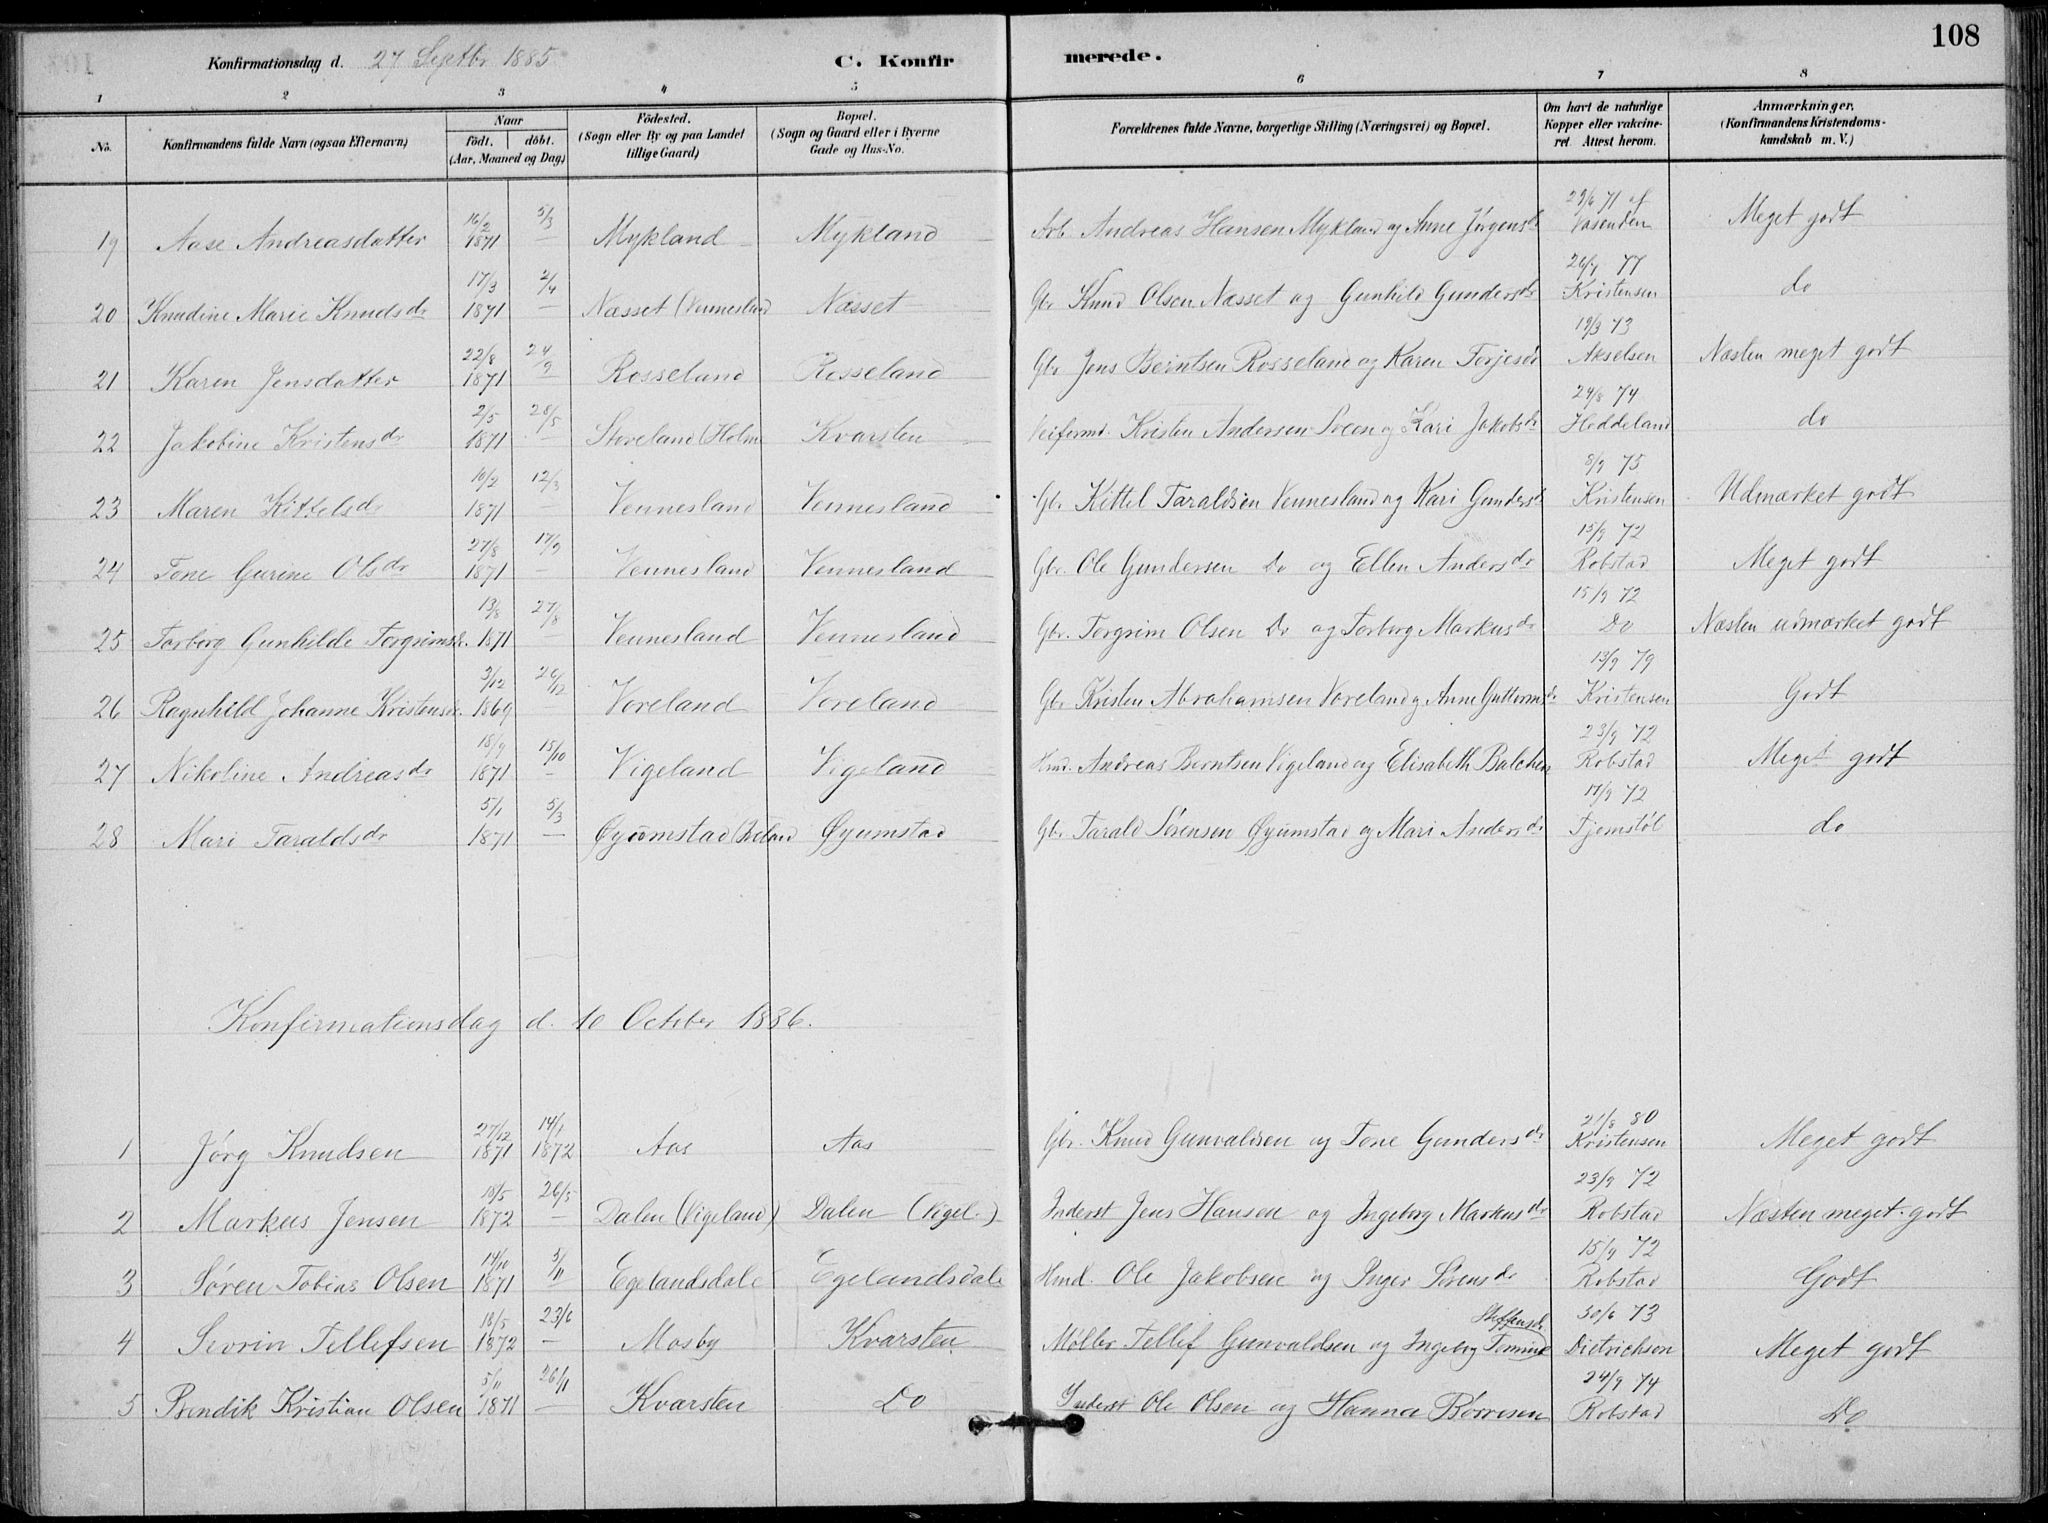 108
Konfirmationsdag d. 27 Septbr 1885 C. Konfirmerede.
1 2 3 4 5 6 7 8
No. Konfirmandens fulde Navn (ogsaa Efternavn) Naar født. døbt. (Aar, Maaned og Dag) Fødested. (Sogn eller By og paa Landet tillige Gaard) Bopæl. (Sogn og Gaard eller i Byerne Gade og Hus-No. Forældrenes fulde Navne, borgerlige Stilling (Næringsvei) og Bopæl. Om havt de naturlige Kopper eller vakcineret. Attest herom. Anmærkninger, (Konfirmandens Kristendomskundskab m. V.)
19 Aase Andreasdatter 16/2 1871 5/3 — Mykland Mykland Arb. Andreas Hansen Mykland og Anne Jørgensd 29/6 71 af Vasenden Meget godt
20 Knudine Marie Knudsdr 17/3 1871 2/4 — Næsset (Vennesland Næsset Gbr Knud Olsen Næsset og Gunhild Gundersdr 26/9 77 Kristensen do
21 Karen Jensdatter 22/8 1871 24/9 Rosseland Rosseland Gbr Jens Berntsen Rosseland og Karen Torjesdr 19/3 73 Akselsen Næsten meget godt
22 Jakobine Kristensdr 2/5 1871 28/5 — Stoveland (Holm Kvarsten Veiformd. Kristen Andersen Sveen og Kari Jakobsdr 24/8 74 Heddeland do
23 Maren Kittelsdr 10/2 1871 12/3 — Vennesland Vennesland Gbr. Kittel Taraldsen Vennesland og Kari Gundersd 8/9 75 Kristensen Udmærket godt
24 Tone Gurine Olsdr 27/8 1871 17/9 — Vennesland Vennesland Gbr. Ole Gundersen Do og Ellen Andersdr 15/9 72 Robstad Meget godt
25 Torborg Gunhilde Torgrimsdr. 13/8 1871 27/8 — Vennesland Vennesland Gbr. Torgrim Olsen Do og Torborg Markusdr 15/9 72 Do Næsten udmærket godt
26 Ragnhild Johanne Kristensdr. 3/12 1869 26/12 — Voreland Voreland Gbr Kristen Abrahamsen Voreland og Anne Guttormsdr 13/9 79 Kristensen Godt
27 Nikoline Andreasdr 18/9 1871 15/10 — Vigeland Vigeland Hmd. Andreas Berntsen Vigeland og Elisabeth Balchen 23/9 72 Robstad Meget godt
28 Mari Taraldsdr 5/1 1871 5/3 — Øyumstad (Iveland Øyumstad Gbr Tarald Sørensen Øyumstad og Mari Andersdr 17/9 72 Tjomstøl do
Konfirmationsdag d. 10 October 1886.
1 Jørg Knudsen 27/12 1871 14/1 1872 Aas Aas Gbr. Knud Gunvaldsen og Tone Gundersdr 21/8 80 Kristensen Meget godt
2 Markus Jensen 18/5 1872 26/5 — Dalen (Vigeland) Dalen (Vigel.) Inderst Jens Hansen og Ingeborg Markusdr 23/9 72 Robstad Næsten meget godt
3 Søren Tobias Olsen 14/10 1871 5/11 Egelandsdal Egelandsdal Hmd. Ole Jakobsen og Inger Sørensdr 15/9 72 Robstad Godt
4 Sevrin Tellefsen 18/5 1872 23/6 — Mosby Kvarsten Møller Tellef Gunvaldsen og Ingeborg Steffensdr 30/6 73 Dietrichson Meget godt
5 Bendik Kristian Olsen 5/11 1871 26/11 — Kvarsten Do Inderst Ole Olsen og Hanna Børresen 24/9 74 Robstad Do